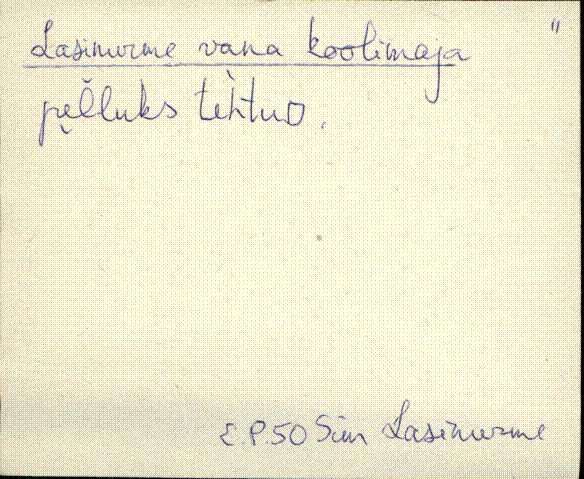 "
Lasinurme vana koolimaja
pe̮l̆luks tèhtuD.
E.P.50 Sim Lasinurme